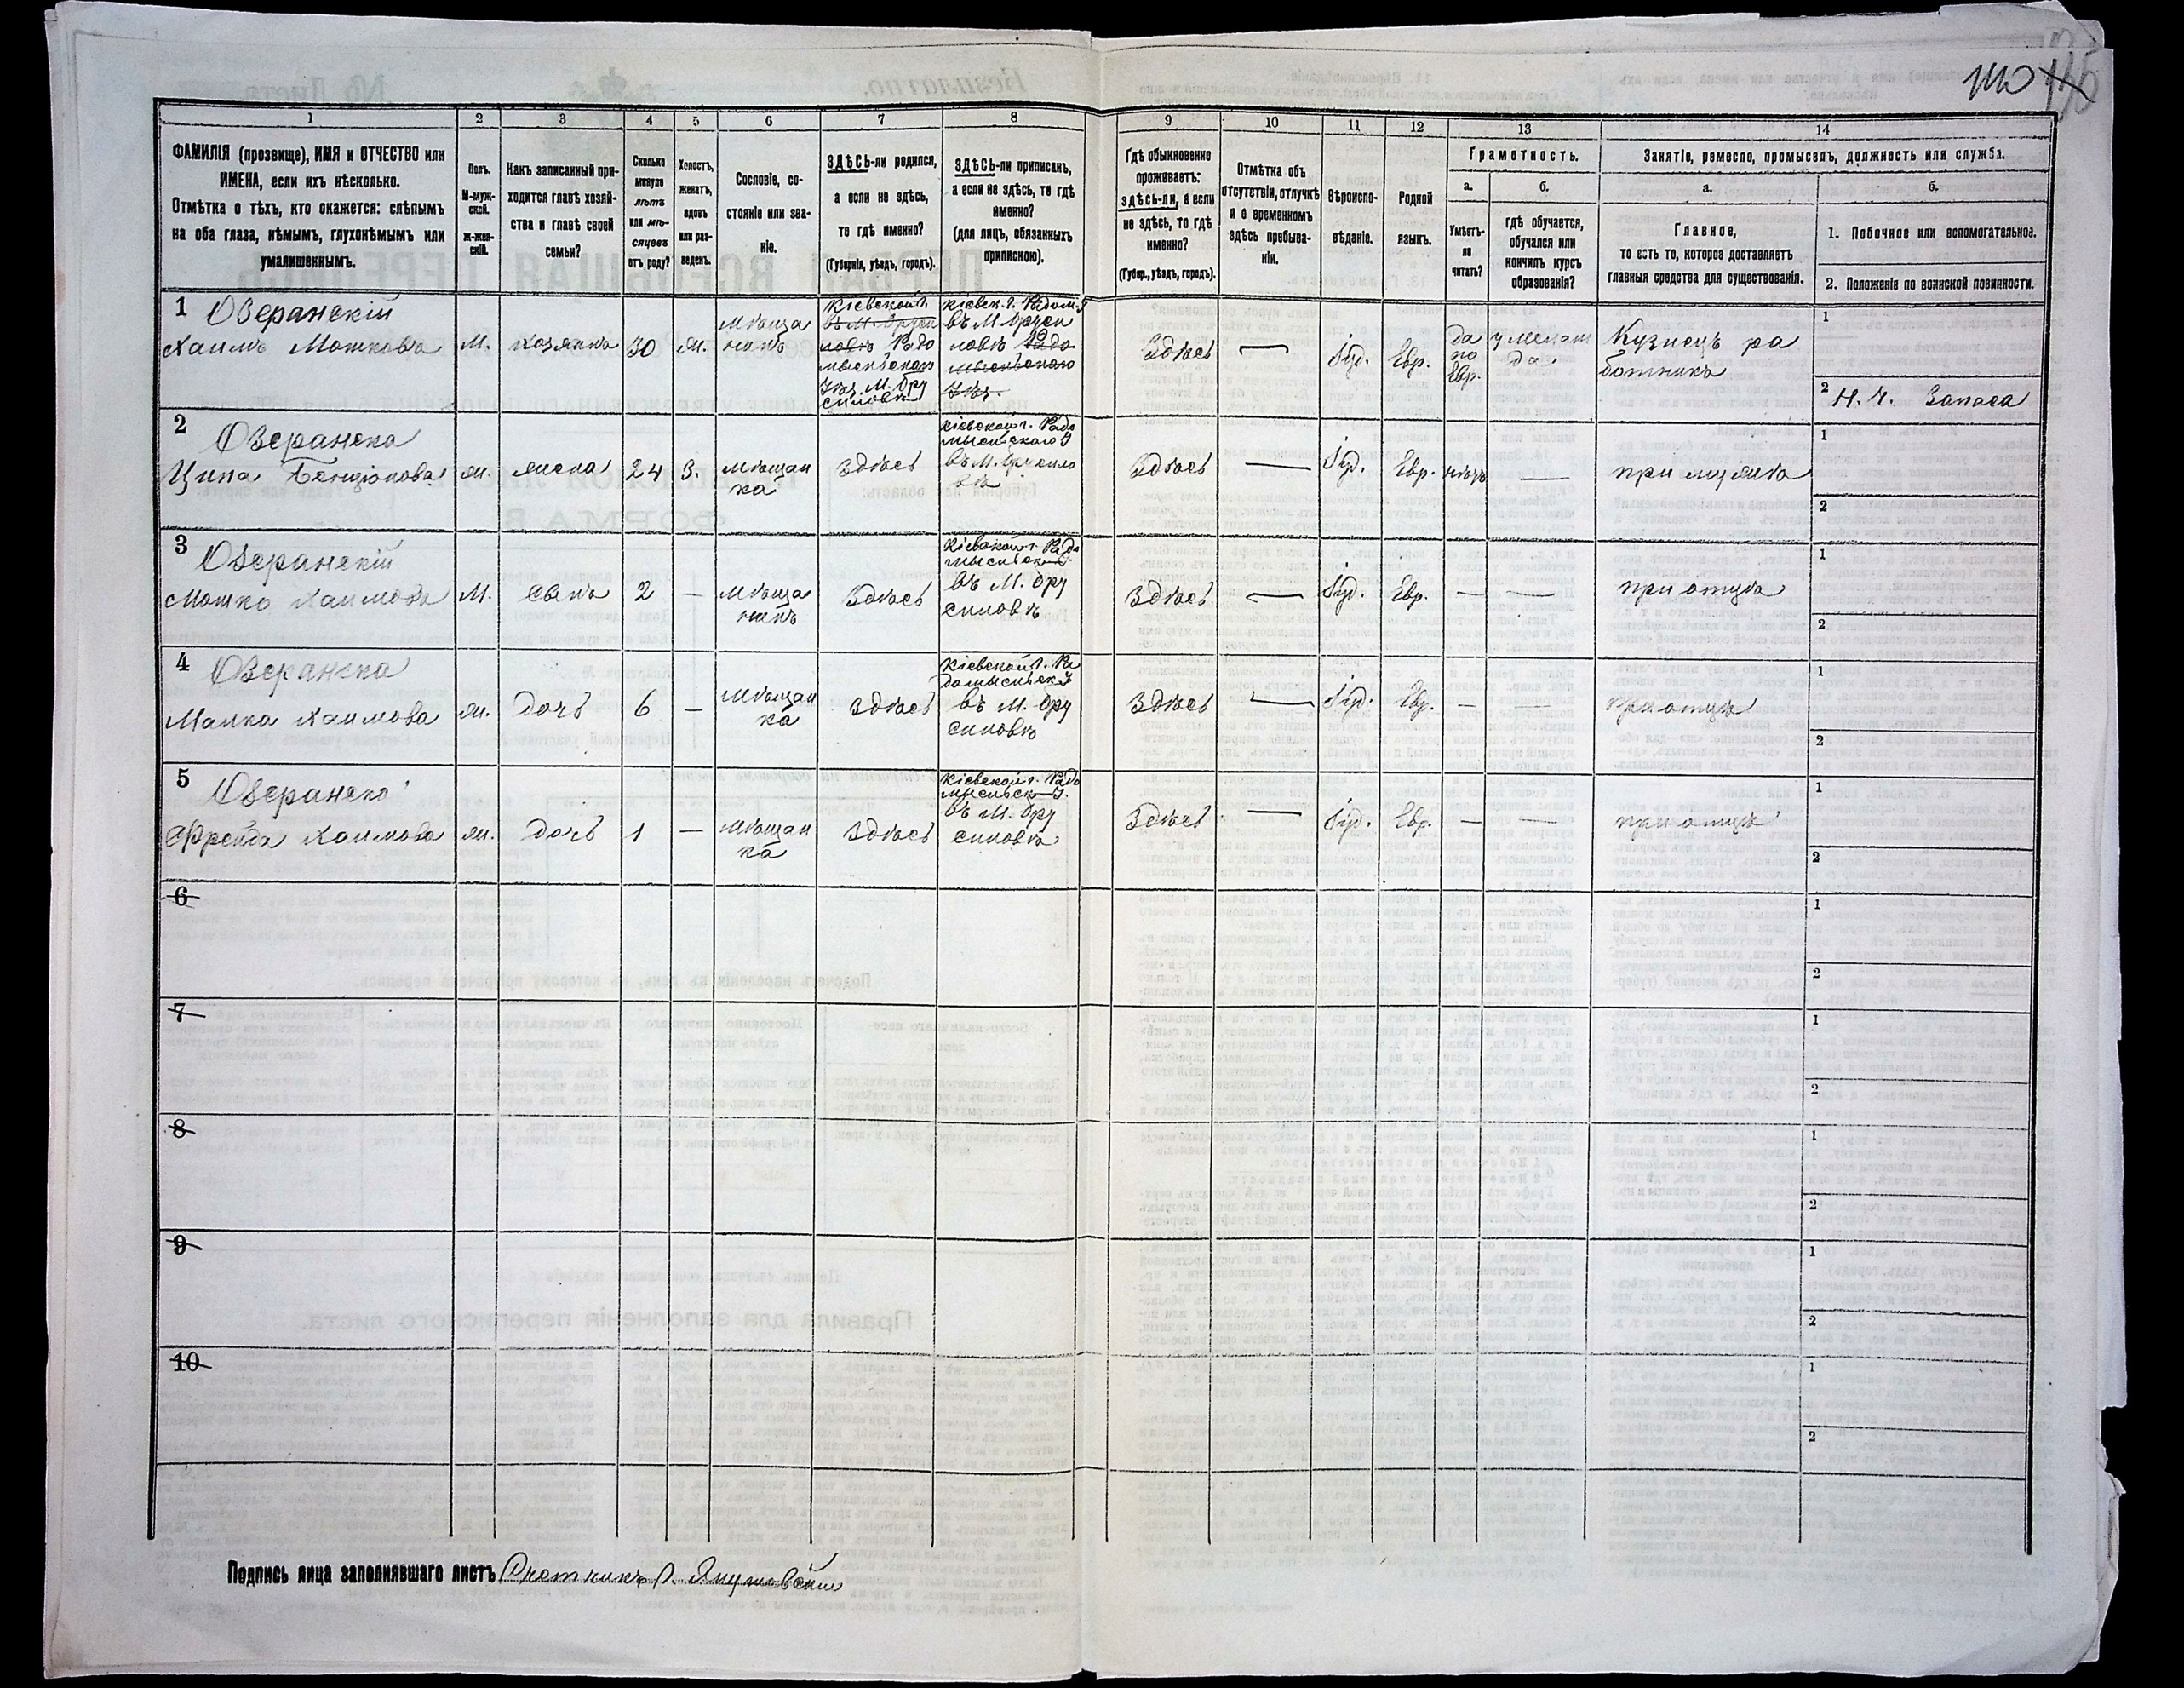 110
1 2 3 4 5 6 7 8 9 10 11 12 13 14
ФАМИЛІЯ (прозвище), ИМЯ и ОТЧЕСТВО или
ИМЕНА, если ихъ нѣсколько.
Отмѣтка о тѣхъ, кто окажется: слѣпымъ
на оба глаза, нѣмымъ, глухонѣмымъ или
умалишеннымъ.
Полъ.
М-муж-
ской.
ж-жен-
скій.
Какъ записанный при-
ходится главѣ хозяй-
ства и главѣ своей
семьи?
Сколько
минуло
лѣтъ
или мѣ-
сяцевъ
отъ роду?
Холостъ,
женатъ,
вдовъ
или раз-
веденъ.
Сословіе, со-
стояніе или зва-
ніе.
ЗДѢСЬ-ли родился,
а если не здѣсь,
то гдѣ именно?
(Губернія, уѣздъ, городъ).
ЗДѢСЬ-ли приписанъ,
а если не здѣсь, то гдѣ
именно?
(для лицъ, обязанныхъ
припискою).
Гдѣ обыкновенно
проживаетъ:
здѣсь-ли, а если
не здѣсь, то гдѣ
именно?
(Губер., уѣздъ, городъ).
Отмѣтка объ
отсутствіи, отлучкѣ
и о временномъ
здѣсь пребыва-
ніи.
Вѣроиспо-
вѣданіе.
Родной
языкъ.
Грамотность.
а.
Умѣетъ-
ли
читать?
б.
гдѣ обучается,
обучался или
кончилъ курсъ
образованія?
Занятіе, ремесло, промыселъ, должность или служба.
а.
Главное,
то есть то, которое доставляетъ
главныя средства для существованія.
б.
1. Побочное или вспомогательное.
2. Положеніе по воинской повинности.
1 Озеранскій
Хаимъ Мошковъ
М.
хозяинъ
30
ж.
мѣща
нинъ
Кіевской г.
въ М. Бруси
ловѣ Радо
мысльскаго
Уѣз. М. Бру
силовѣ
Кіевск. г. Радом. У
въ М. Бруси
ловѣ Радо
мысльскаго
Уѣз.
Здѣсь
—
Іуд.
Евр.
да
по
Евр.
у мелам
да
Кузнецъ ра
ботникъ
1
2 Н. ч. Запаса
2 Озеранска
Ципа Бенціонова
ж.
жена
24
З.
мѣщан
ка
здѣсь
Кіевской г. Радо
мысльскаго У
въ М. Брусило
вѣ
Здѣсь
—
Іуд.
Евр.
нѣтъ
—
при мужѣ
1
2
3 Озеранскій
Мошко Хаимовъ
М.
сынъ
2
—
мѣща
нинъ
Здѣсь
Кіевской г. Радо
мысльск. У.
въ М. Бру
силовѣ
Здѣсь
—
Іуд.
Евр.
—
—
при отцѣ
1
2
4 Озеранска
Малка Хаимова
ж.
дочь
6
—
мѣщан
ка
здѣсь
Кіевской г. Ра
домысльск. У
въ М. Бру
силовѣ
Здѣсь
—
Іуд.
Евр.
—
—
при отцѣ
1
2
5 Озеранска
Фрейда Хаимова
ж.
дочь
1
—
мѣщан
ка
Здѣсь
Кіевской г. Радо
мысльск. У.
въ М. Бру
силовѣ
Здѣсь
—
Іуд.
Евр.
—
—
при отцѣ
1
2
6
1
2
7
1
2
8
1
2
9
1
2
10
1
2
Подпись лица заполнявшаго листъ Счетчикъ